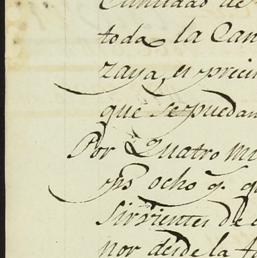 Cantidad de
toda la Can
zaya, es preci
que se puedan
Por Quatro mi
ps ocho q. q
sirvientes de
por desde la fa